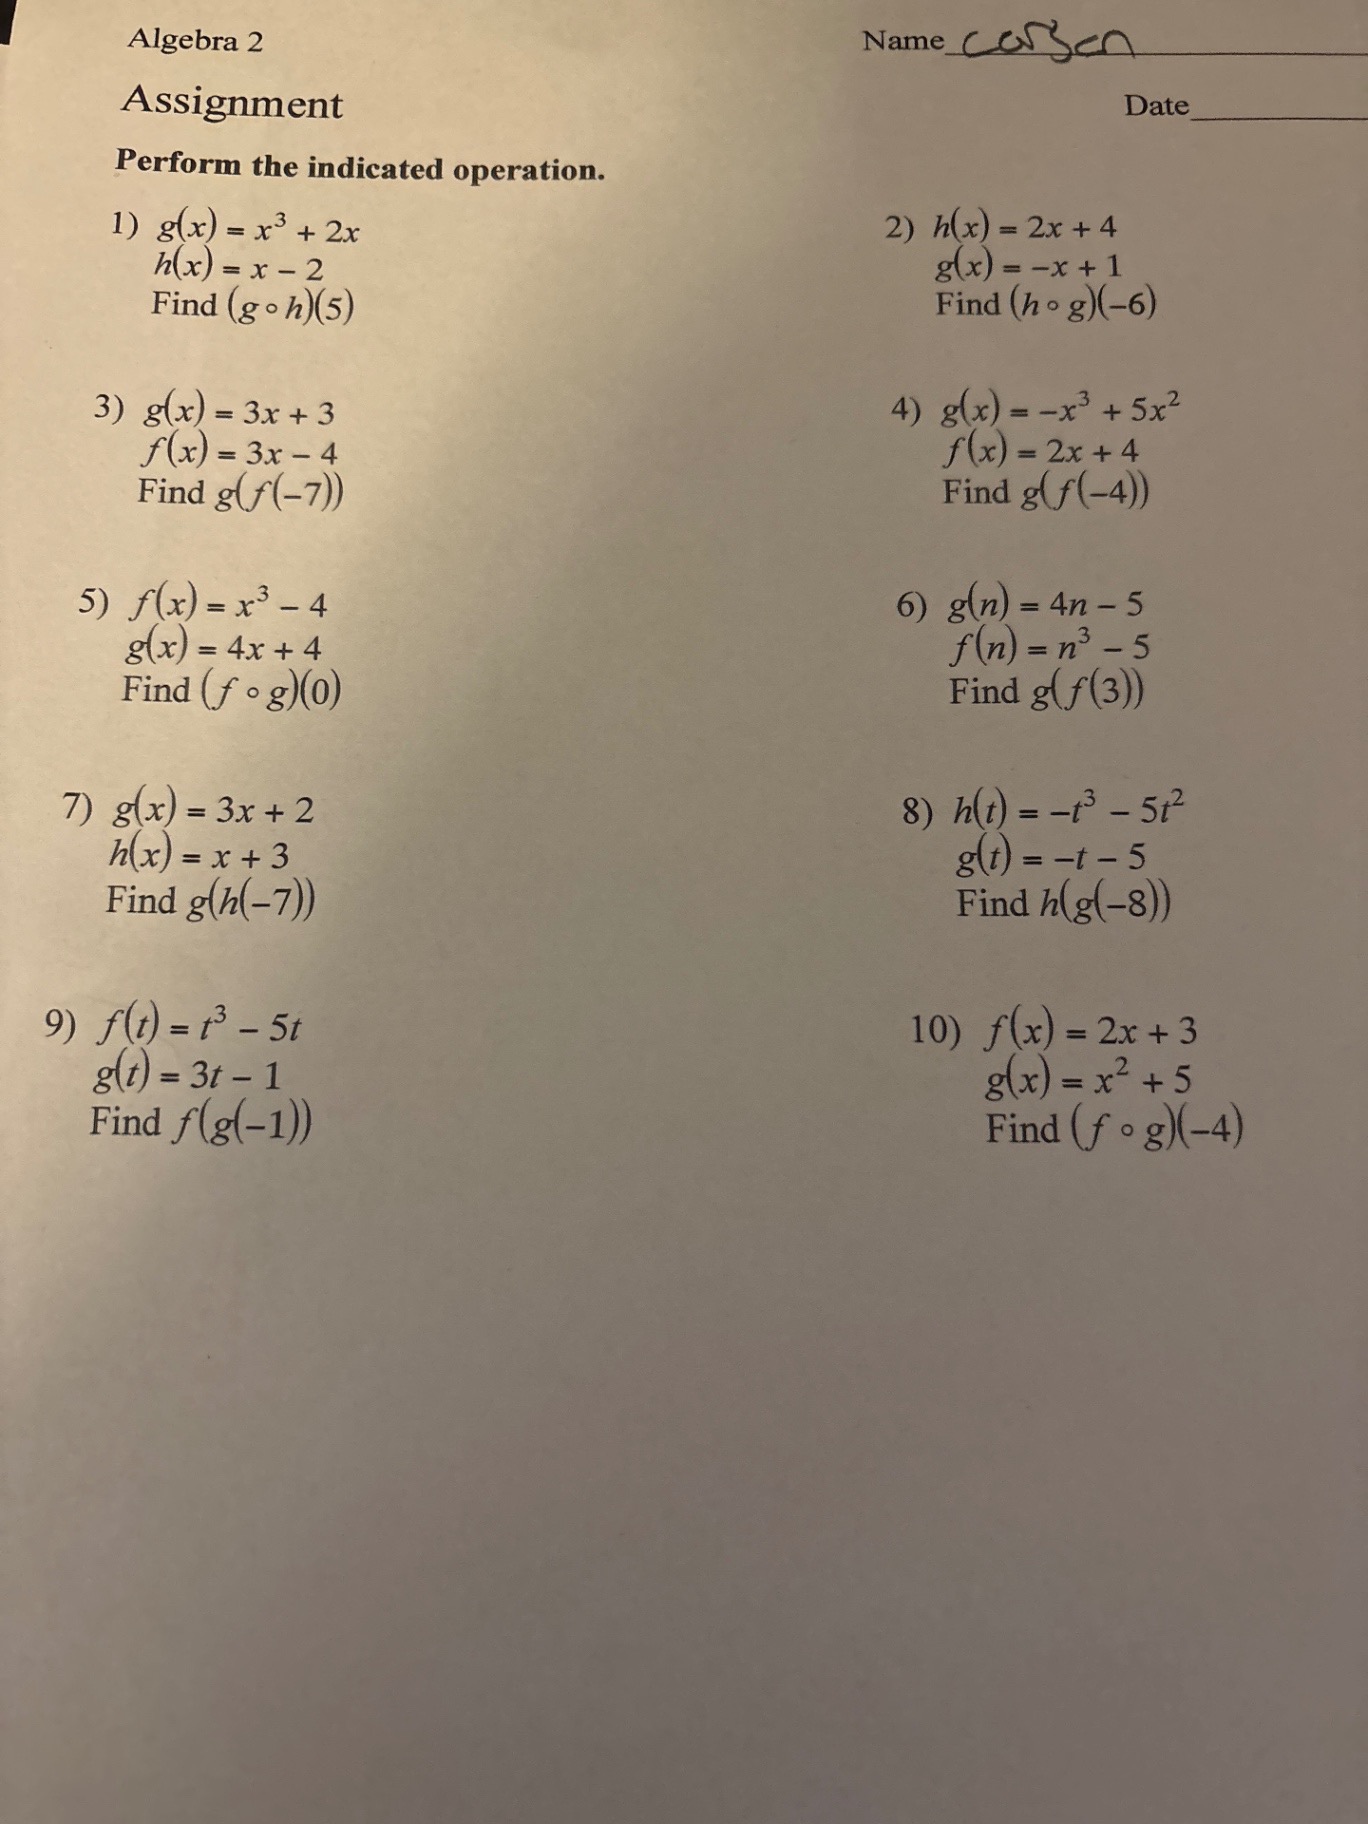 Algebra 2
Name
Assignment
Date
Perform the indicated operation.
1) g(x) = x³ + 2x
h(x) = x − 2
Find (g ∘ h)(5)
2) h(x) = 2x + 4
g(x) = −x + 1
Find (h ∘ g)(−6)
3) g(x) = 3x + 3
f(x) = 3x − 4
Find g(f(−7))
4) g(x) = −x³ + 5x²
f(x) = 2x + 4
Find g(f(−4))
5) f(x) = x³ − 4
g(x) = 4x + 4
Find (f ∘ g)(0)
6) g(n) = 4n − 5
f(n) = n³ − 5
Find g(f(3))
7) g(x) = 3x + 2
h(x) = x + 3
Find g(h(−7))
8) h(t) = −t³ − 5t²
g(t) = −t − 5
Find h(g(−8))
9) f(t) = t³ − 5t
g(t) = 3t − 1
Find f(g(−1))
10) f(x) = 2x + 3
g(x) = x² + 5
Find (f ∘ g)(−4)